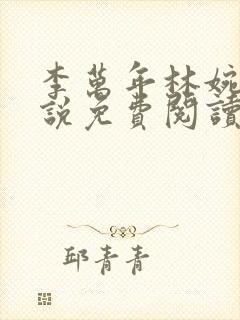 李萬年林婉
說免費閱讀
邱青青